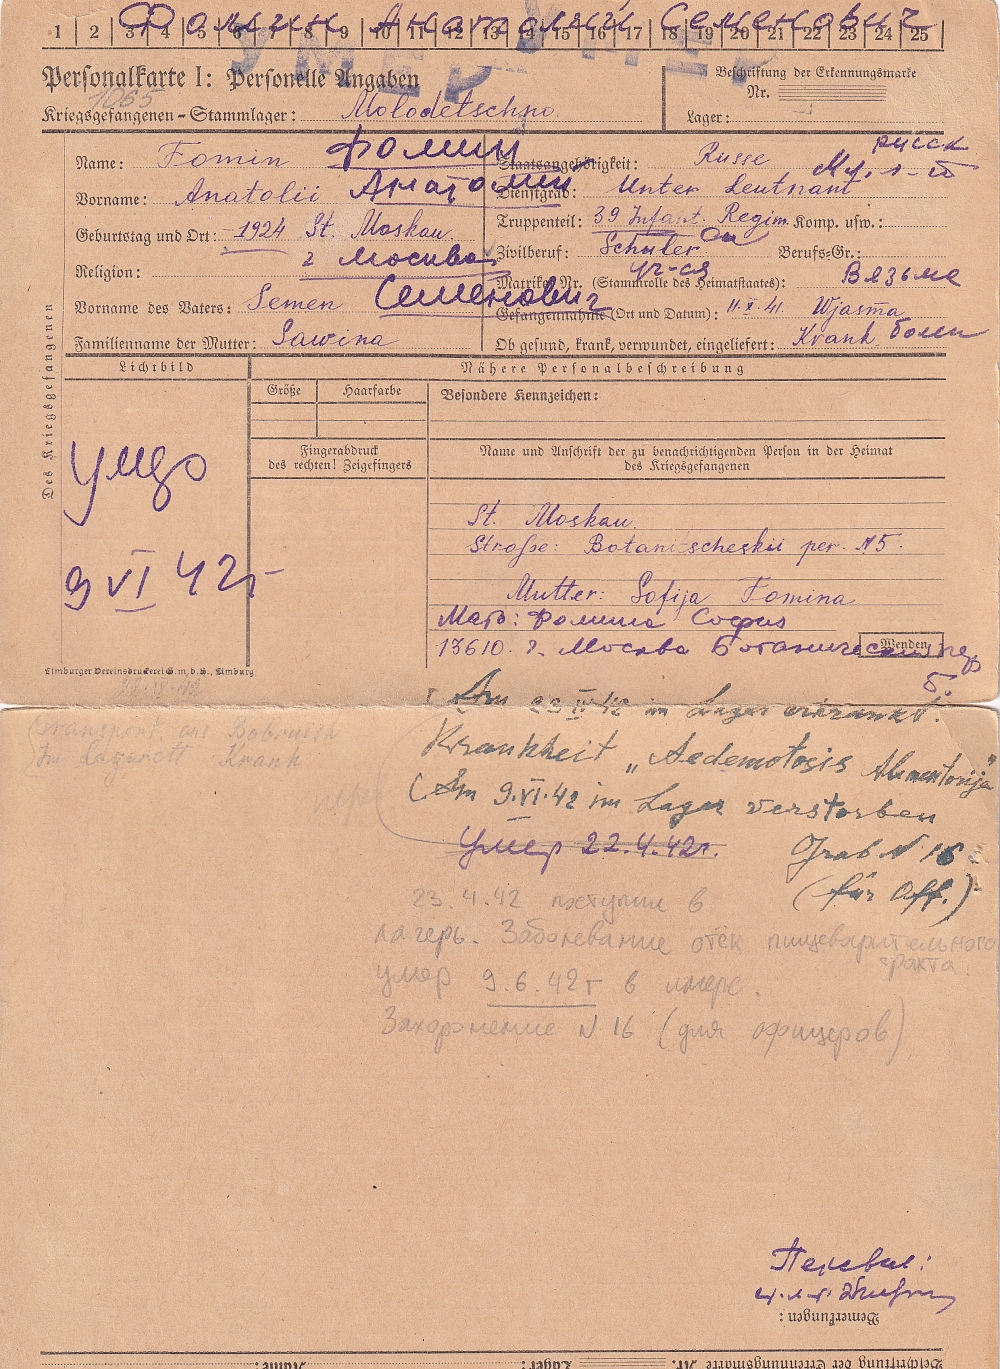 Фомин Анатолий Семенович
1 2 3 4 5 6 7 8 9 10 11 12 13 14 15 16 17 18 19 20 21 22 23 24 25
УМЕР УМЕР
Personalkarte I: Personelle Angaben
Beschriftung der Erkennungsmarke
1065
Nr.
Kriegsgefangenen-Stammlager: Molodetschno
Lager:
Des Kriegsgefangenen
Name: Fomin Фомин
Staatsangehörigkeit: Russe русск
Мл. л-т
Vorname: Anatolii Анатолий
Dienstgrad: Unter Leutnant
Truppenteil: 39 Infant. Regim. Komp. usw.:
Geburtstag und Ort: 1924 St. Moskau.
г Москва
Zivilberuf: Schüler Berufs-Gr.:
уч-ся
Religion:
Matrikel Nr. (Stammrolle des Heimatstaates): Вязьма
Vorname des Vaters: Semen Семенович
Gefangennahme (Ort und Datum): 11.X.41. Wjasma
Familienname der Mutter: Sawina
Ob gesund, krank, verwundet, eingeliefert: Krank болен
Lichtbild
Nähere Personalbeschreibung
Größe Haarfarbe
Besondere Kennzeichen:
Fingerabdruck
des rechten! Zeigefingers
Name und Anschrift der zu benachrichtigenden Person in der Heimat
des Kriegsgefangenen
9 VI 42г
St. Moskau.
Straße: Botanitscheskii per. N5.
Mutter: Sofija Fomina
Мать: Фомина София
13610. г. Москва Ботанический пер
5.
Wenden
Limburger Vereinsdruckerei G. m. b. H., Limburg
22.IV.42
Am 22 IV 42 im Lager erkrankt.
Transport aus Bobruisk
Im Lazarett Krank
Krankheit „Aedemotosis Alimentorija"
(Am 9.VI.42 im Lager verstorben
умер 22.4.42г.
Grab N 16
(für Off.)
23.4.42 поступил в
лагерь. Заболевание отёк пищеварительного
тракта.
умер 9.6.42г в лагере.
Захоронение N 16 (для офицеров)
Перевел:
Bemerkungen:
Beschriftung der Erkennungsmarke Nr.
Lager:
Name: